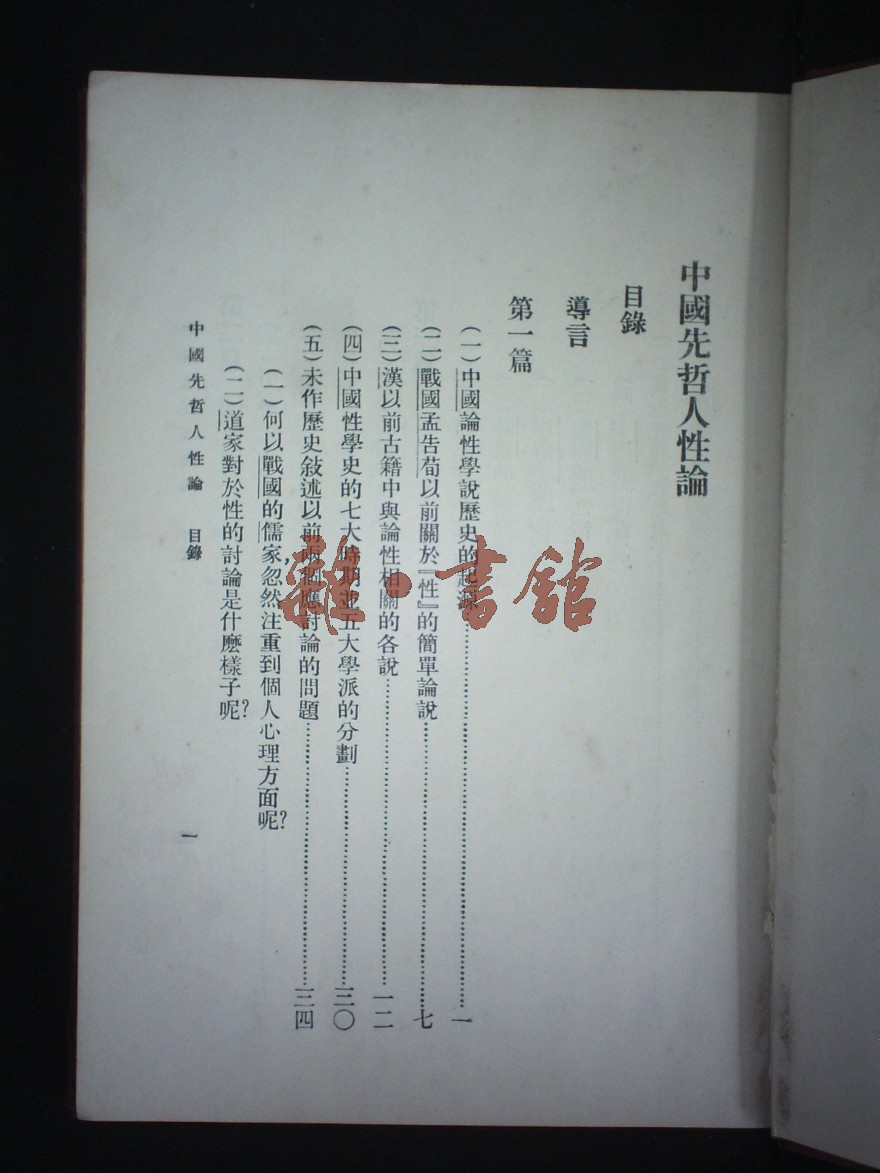 中國先哲人性論
目錄
導言
第一篇
(一)中國論性學說歷史的起源……一
(二)戰國孟告荀以前關於『性』的簡單論說……七
(三)漢以前古籍中與論性相關的各說……一二
(四)中國性學史的七大時期並五大學派的分劃……三〇
(五)未作歷史敘述以前兩個應討論的問題……三四
(一)何以戰國的儒家，忽然注重到個人心理方面呢？
(二)道家對於性的討論是什麼樣子呢？
中國先哲人性論 目錄
一
雜·書館